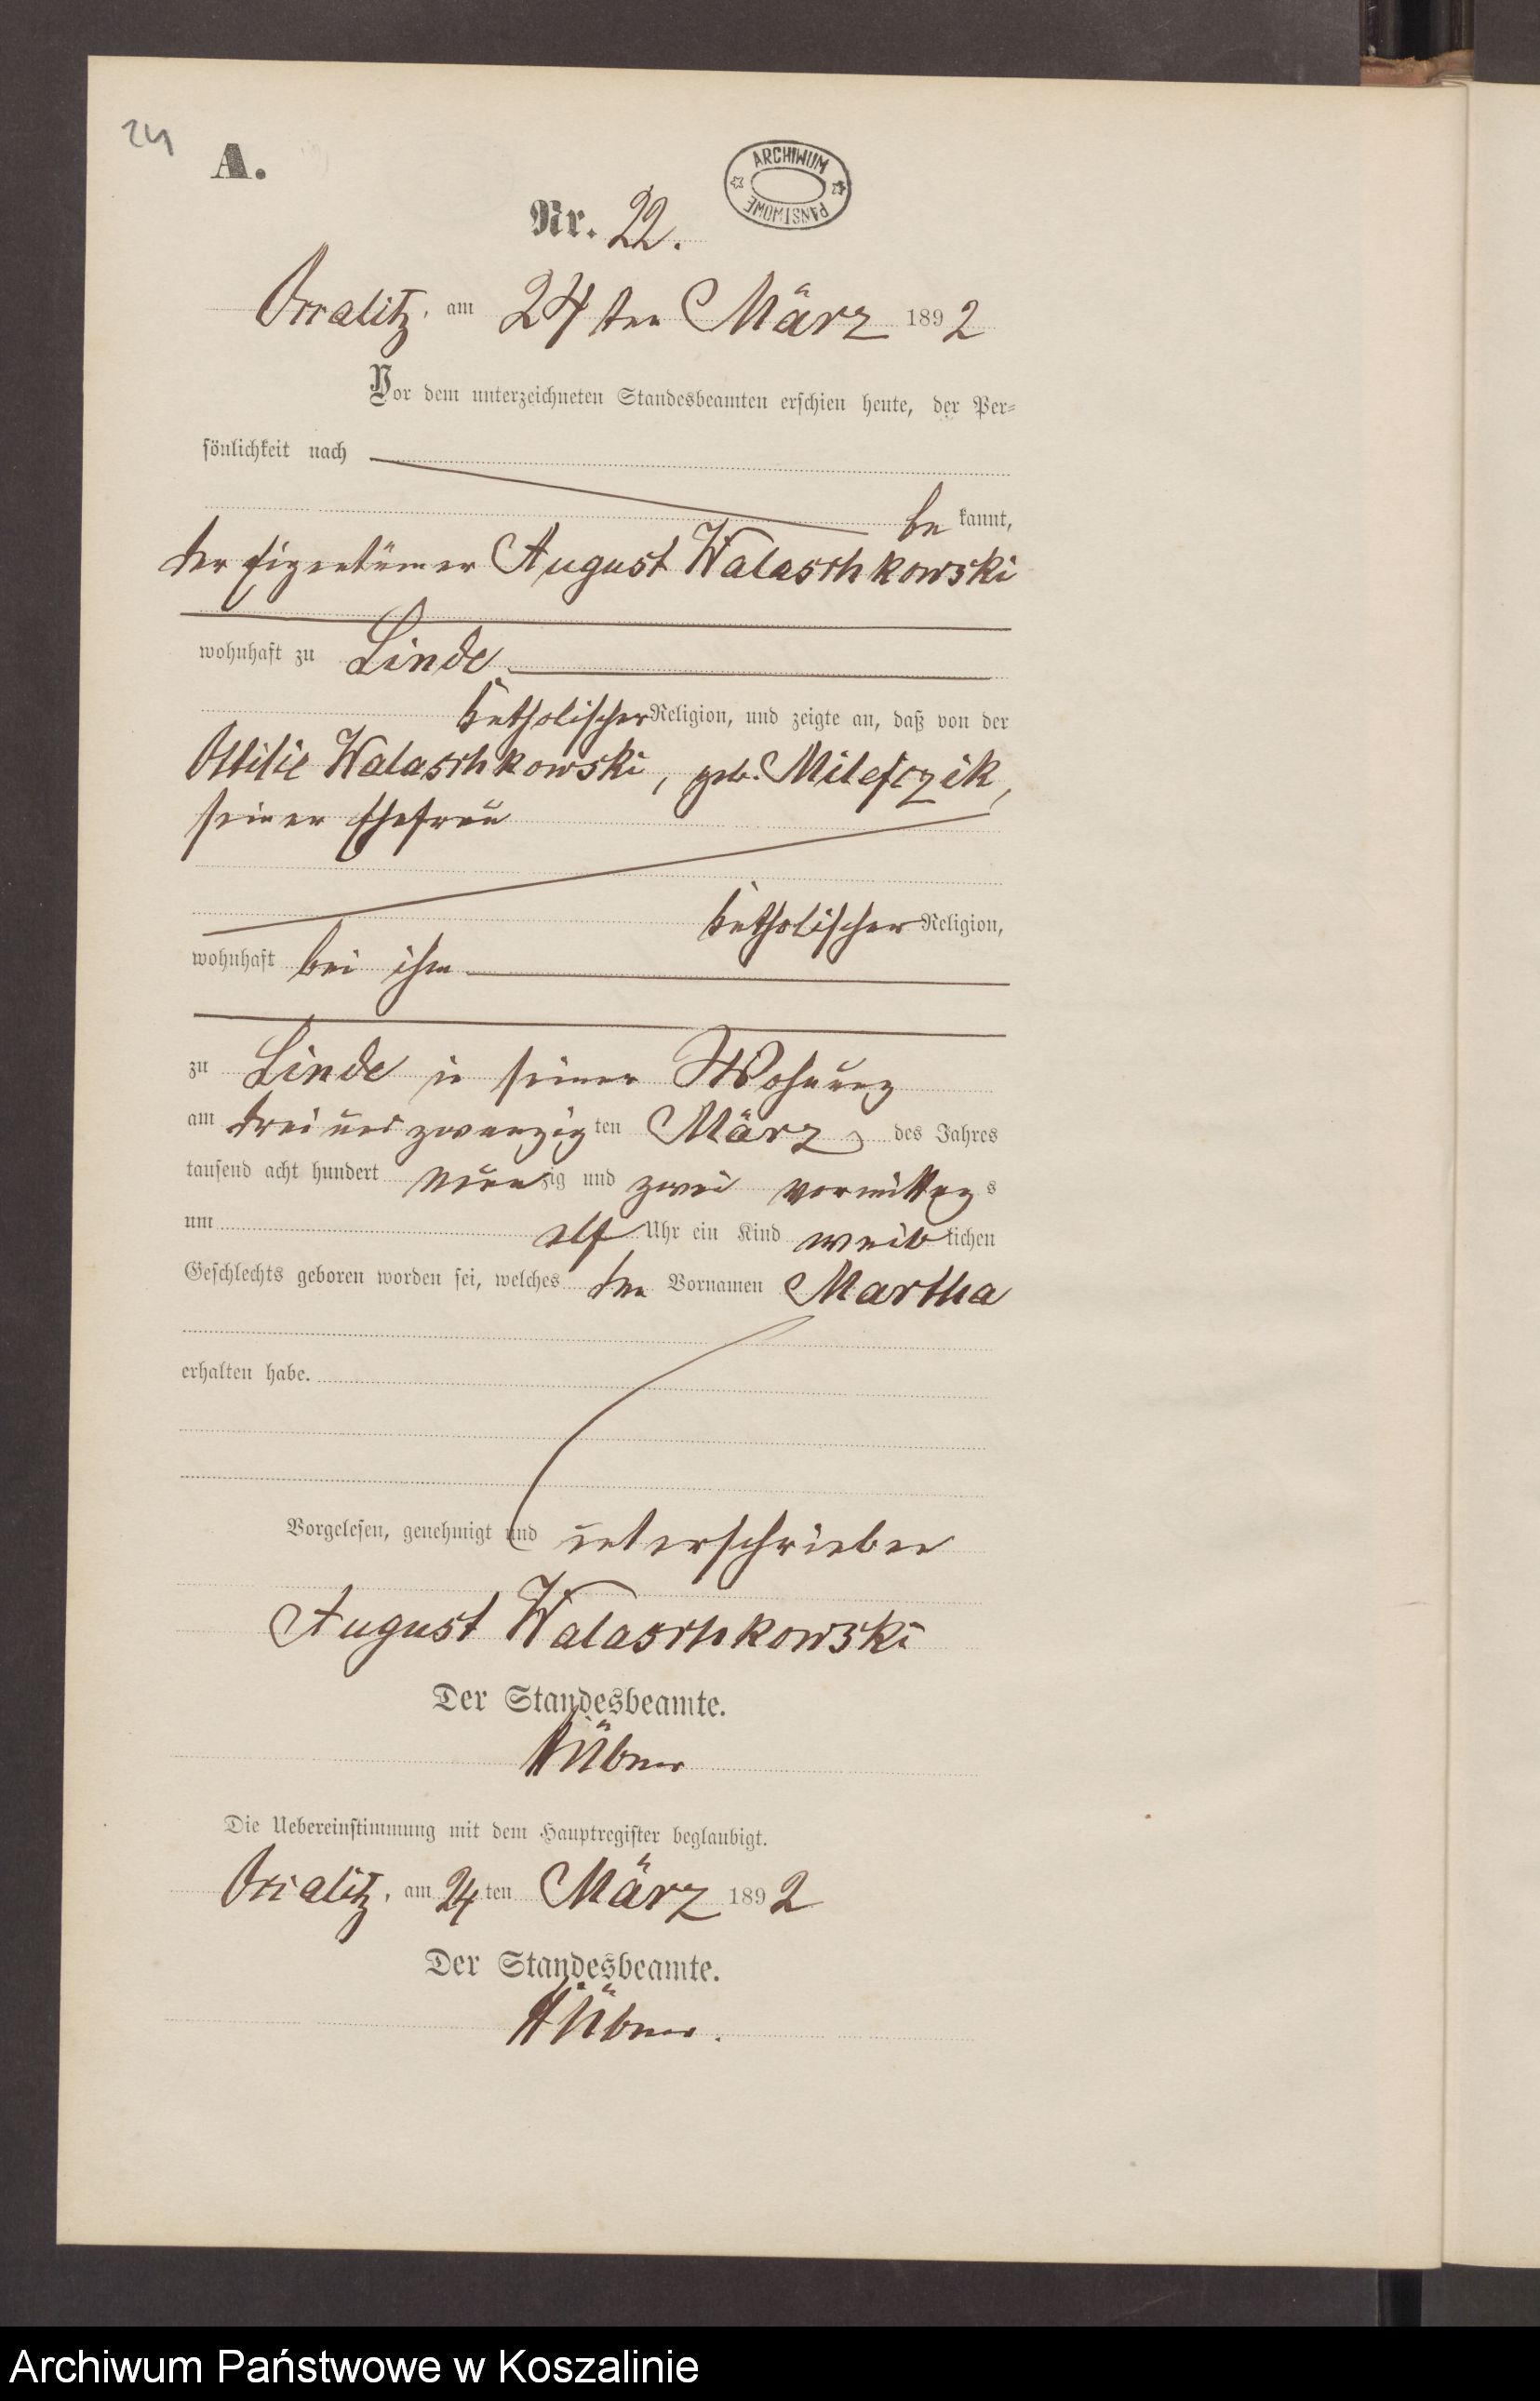 24
A.
ARCHIWUM
PAŃSTWOWE
Nr. 22.
am 24ten März 1892
Vor dem unterzeichneten Standesbeamten erschien heute, der Per-
sönlichkeit nach
be kannt,
der Eigentümer August Walaschkowski
wohnhaft zu Linde
katholischer Religion, und zeigte an, daß von der
Ottilie Walaschkowski, geb. Milejczik,
seiner Ehefrau
katholischer Religion,
wohnhaft bei ihm
zu Linde in seiner Wohnung
am drei und zwanzig ten März des Jahres
tausend acht hundert neunzig und zwei vormittags
um elf Uhr ein Kind weiblichen
Geschlechts geboren worden sei, welches den Vornamen Martha
erhalten habe.
Vorgelesen, genehmigt und unterschrieben
August Walaschkowski
Der Standesbeamte.
Hübner
Die Uebereinstimmung mit dem Hauptregister beglaubigt.
am 24ten März 1892
Der Standesbeamte.
Hübner.
Archiwum Państwowe w Koszalinie